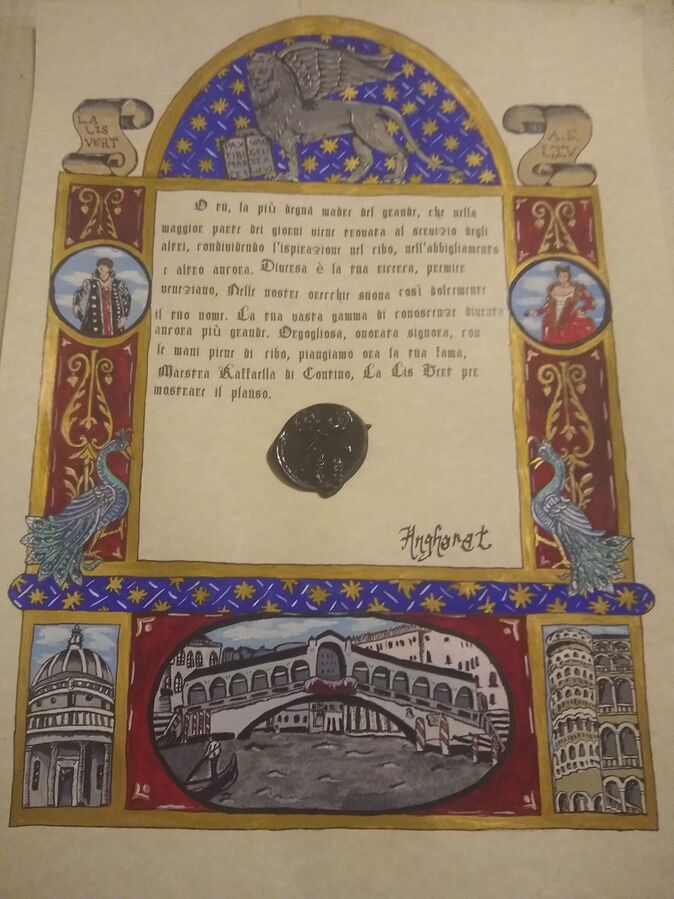 LA
LIS
VERT
PAX
TIBI
MAR
A.S.
LIV
O tu, la più degna madre del grande, che nella
maggior parte dei giorni viene trovata al servizio degli
altri, condividendo l'ispirazione nel cibo, nell'abbigliamento
e altro ancora. Diversa è la tua ricerca, premier
veneziano, Nelle nostre orecchie suona così dolcemente
il tuo nome. La tua vasta gamma di conoscenze diventa
ancora più grande. Orgogliosa, onorata signora, con
le mani piene di cibo, piangiamo ora la tua fama,
Maestra Raffaella di Contino, La Lis Vert per
mostrare il plauso.
Angharat